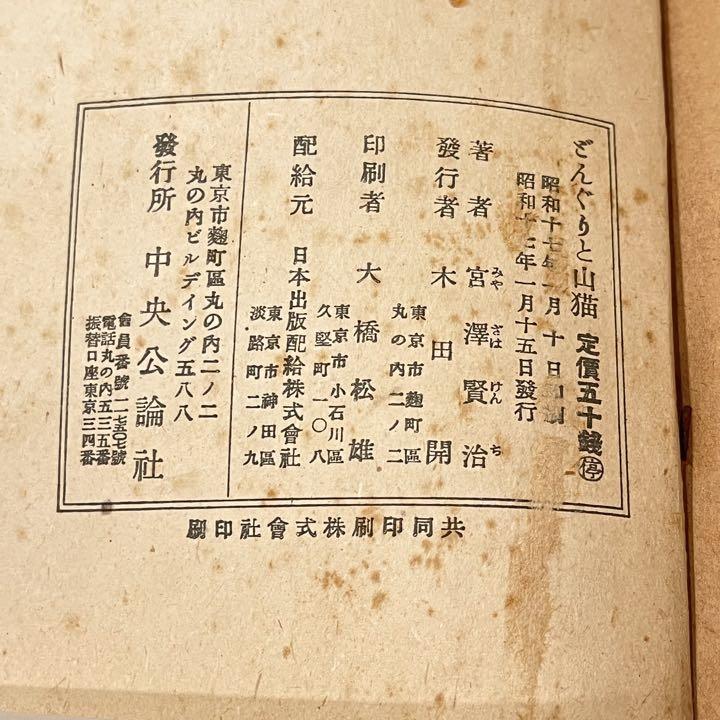 どんぐりと山猫 定價五十錢 停
昭和十七年一月 十 日印刷
昭和十七年一月十五日發行
著者 宮澤賢治
みや ざは けん ち
發行者 木田開
東京市麴町區
丸の内二ノ二
印刷者 大橋松雄
東京市小石川區
久堅町一〇八
配給元 日本出版配給株式會社
東京市神田區
淡路町二ノ九
東京市麴町區丸の内二ノ二
丸の内ビルデイング五八八
發行所 中央公論社
會員番號
電話丸の内五三五番
振替口座東京三四番
共同印刷株式會社印刷